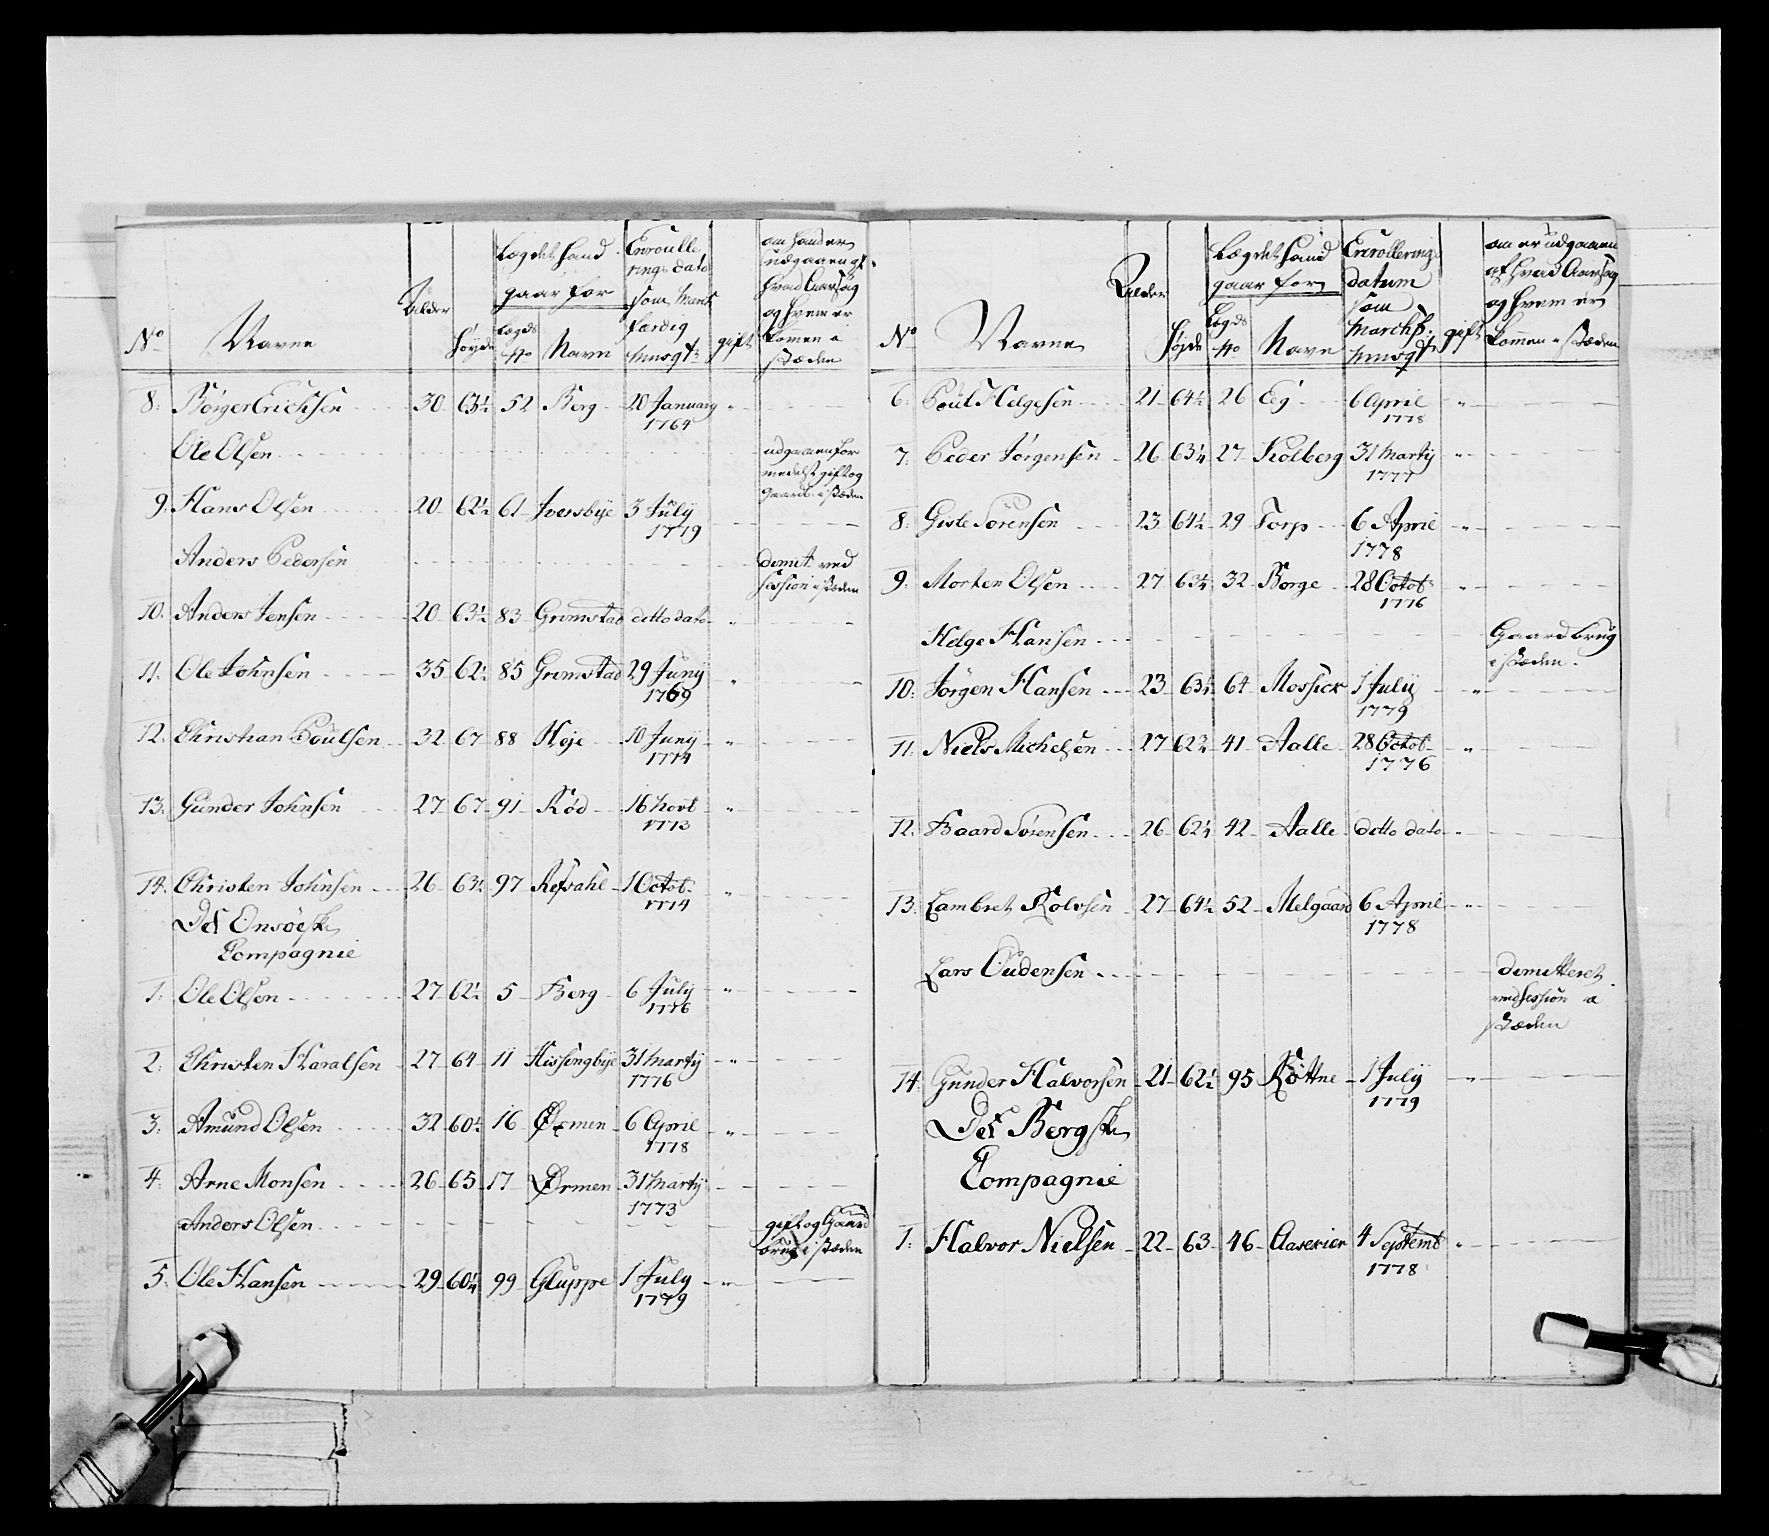 No Navne Alder Høyde Lægdet hand gaar for Lægds No Navn Enroullerings dato som March færdig munsgt: gift om hand er udgaaen af hvad Aarsag og hvem er komen i stæden
8: Børger Erichsen 30 63½ 52 Berg 20 January 1764 "
Ole Olsen udgaaen formedelst gift og Gaardb: i stæden
9. Hans Olsen 20 62½ 61 Iversbÿe 3 Julÿ 1779
Anders Pedersen dimit: ved Session i stæden
10. Anders Jensen 20 63½ 83 Grimstad ditto dato "
11. Ole Johnsen 35 62½ 85 Grimstad 29 Junÿ 1769 "
12. Christian Poulsen 32 67 88 Høje 10 Junÿ 1774 "
13. Gunder Johnsen 27 67 91 Kød 16 Novt 1773 "
14. Christen Johnsen 26 63½ 97 Refsahl 1 Octob. 1774 "
Det Onsøeske
Compagnie
1. Ole Olsen 27 62½ 5 Berg 6 Julÿ 1776 "
2. Christen Haralsen 27 64 11 Kissingbÿe 31 Martÿ 1776 "
3. Amund Olsen 32 60½ 16 Ørmen 6 April 1778 "
4. Arne Monsen 26 65 17 Ørmen 31 Martÿ 1773
Anders Olsen gift og Gaard brug i stæden
5. Ole Hansen 29 60¼ 99 Gluppe 1 July 1779 "
No Navne Alder Højde Lægdet hand gaar for Lægds No Navn Enrollerings datum som marchf. munsgt gift om er udgaaen af hvad Aarsag og hvem er kommen i stæden
6. Poul Helgesen 21 64½ 26 Eg 6 April 1778 "
7. Peder Jørgensen 26 63¼ 27 Kolberg 31 Martÿ 1777 "
8. Gisle Sørensen 23 64½ 29 Torp 6 April 1778 "
9. Morten Olsen 27 63¼ 32 Borge 28 Octob. 1776 "
Helge Hansen Gaardbrug i stæden.
10. Jørgen Hansen 23 63½ 64 Mossick 1 Julÿ 1779 "
11. Niels Michelsen 27 62¾ 41 Aalle 28 Octob. 1776 "
12. Baard Sørensen 26 62¼ 42 Aalle ditto dato "
13. Lambret Rolvsen 27 64½ 52 Melgaard 6 April 1778 "
Lars Oudensen dimitteret ved Session i stæden
14. Gunder Halvorsen 21 62½ 95 Køttne 1 Julÿ 1779 "
Det Bergske
Compagnie
1. Halvor Nielsen 22 63 46 Claserier 4 Septemb 1778 "